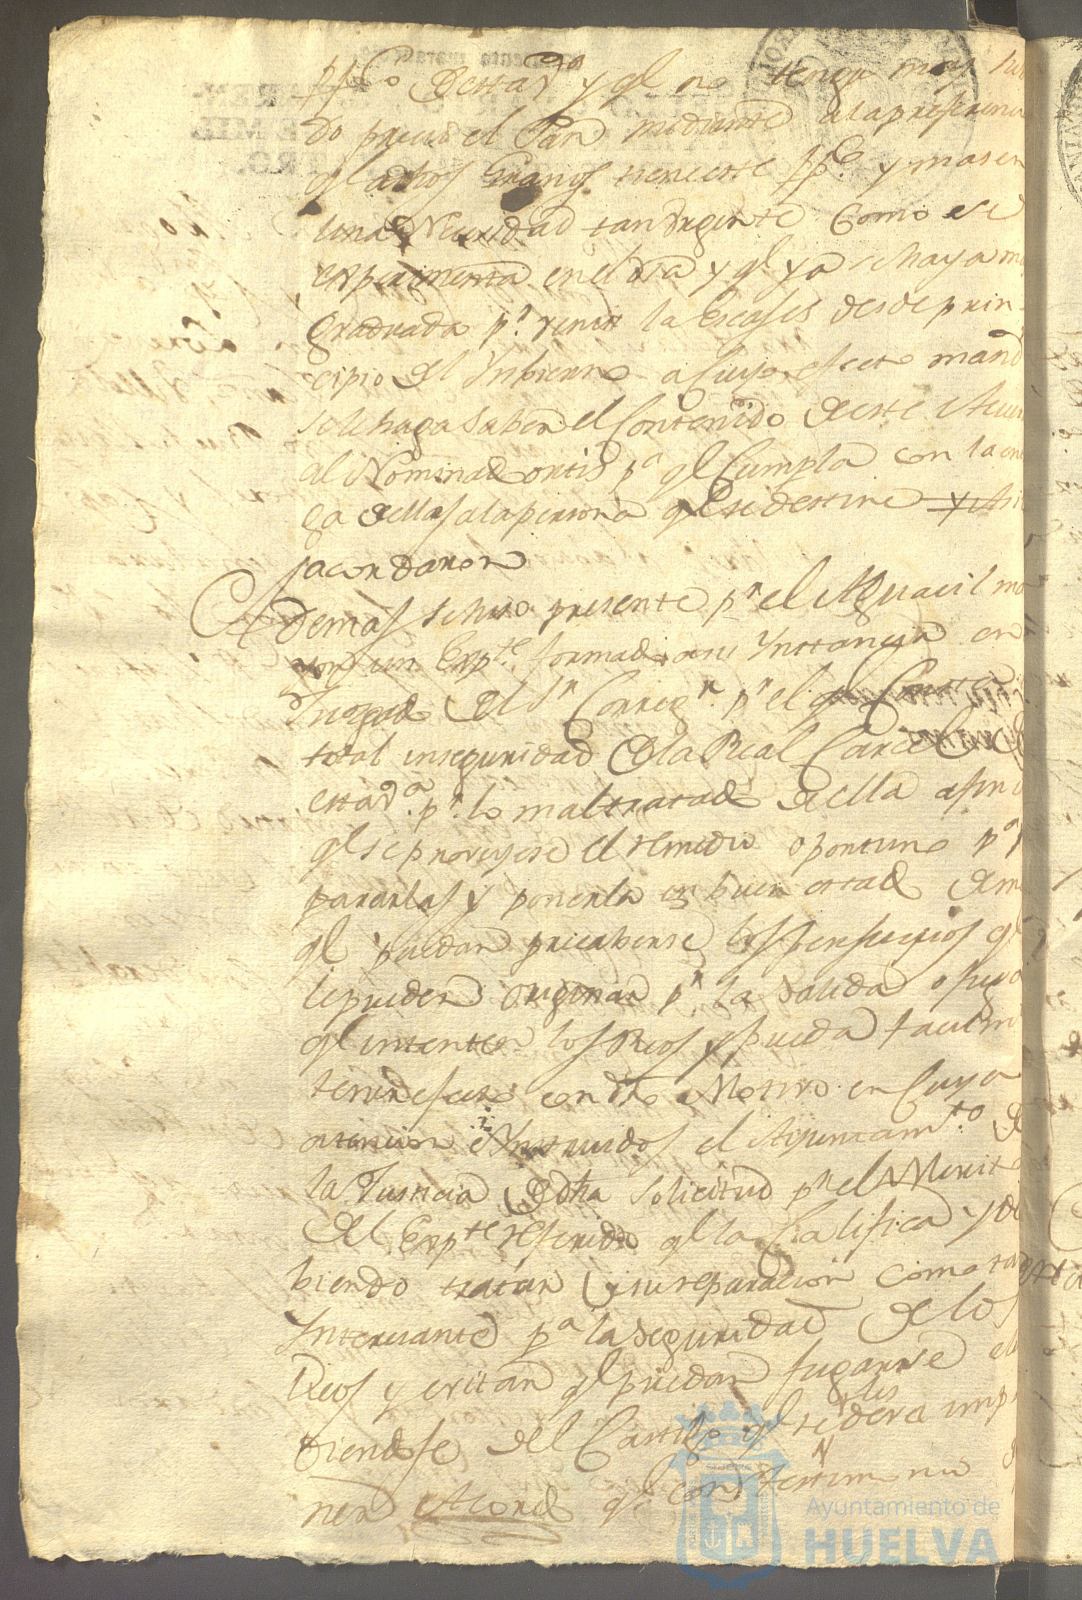 pp.co de esta v.a y q.l no tenga mas su
do precio el Pan mediante a la preferencia
q.l a dhos Granos tiene este pp.co y mas en
una Necesidad tan Urgente como se
experimenta en el dia y q.l ya se haya
graduada p.r venir la Escases desde prin
cipio del Ynbierno a cuyo efecto mand
se le haga saber el Contenido de este Acuer
al Nominado ortis p.a q.l Cumpla con la en
ga de ellas a la persona q.l se destine y Asi
lo acordaron
Ademas se hiso presente p.r el Alguacil ma
yor un Exp.te formado a su Ynstancia en
Jusgado del S.r Correg.r p.r el q.l Consta
total inseguridad de la Real Carcel de
esta v.a p.r lo maltratada de ella a fin
q.l se proveyese el remedio oportuno p.a
pararlas y ponerla en buen estado de m
q.l puedan precaberse los perjuicios q.l
le pueden originar p.r la salida o fuga
q.l intenten los Reos y pueda facilm
tener efecto con dho Motivo en Cuya
atencion e Ynstruidos el Ayuntam.to de
la Justicia de dha solicitud p.r el Merito
del Exp.te referido q.l la Califica y de
biendo tratar de su reparacion como tan
Interesante p.a la seguridad de los
Reos y evitar q.l puedan fugarse
diendose del Castigo q.l se les devera imp
ner Acord q.l con
Ayuntamiento de
HUELVA